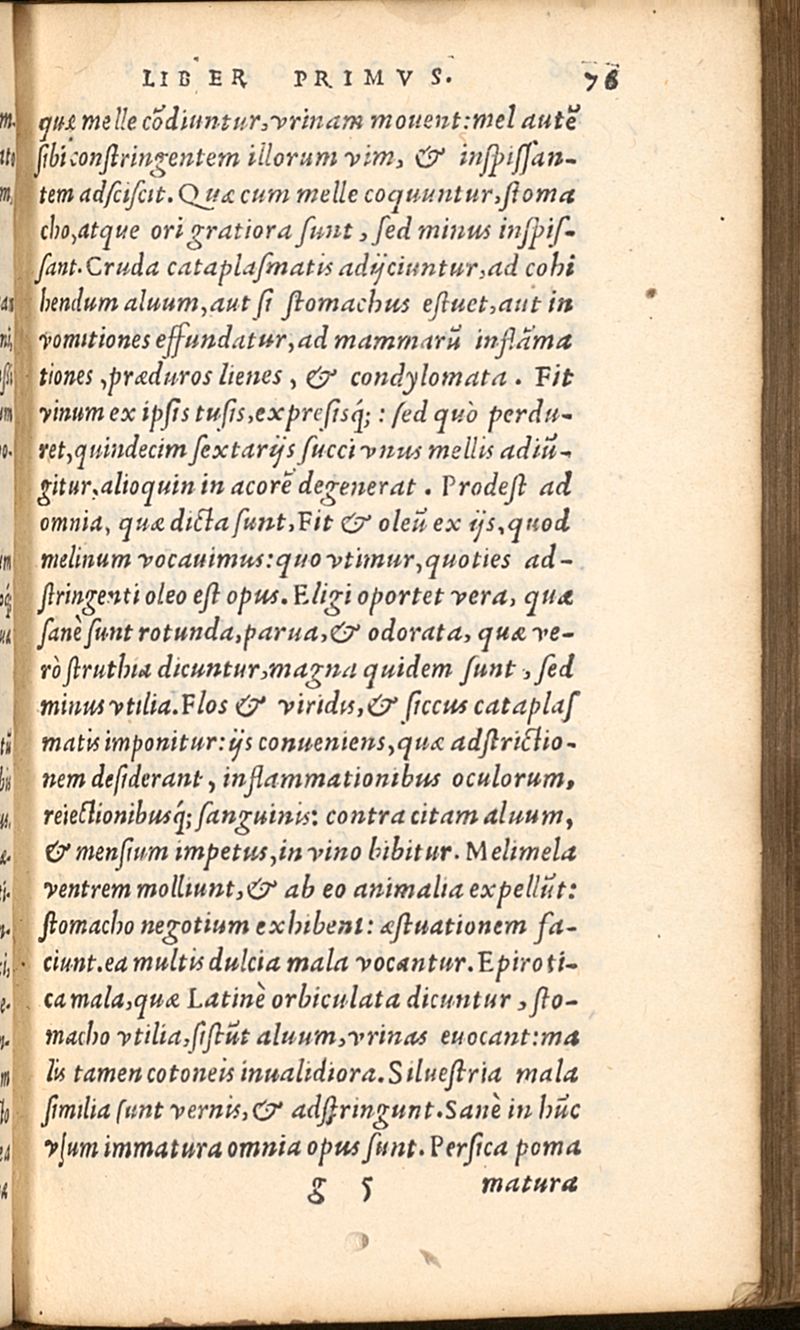 LIBER PRIMVS. 76
quæ melle cõdiuntur, vrinam mouent: mel autẽ
sibi constringentem illorum vim, & inspissan-
tem adsciscit. Quæ cum melle coquuntur, stoma
cho, atque ori gratiora sunt, sed minus inspis-
sant. Cruda cataplasmatis adijciuntur, ad cohi
bendum aluum, aut si stomachus estuet, aut in
vomitiones effundatur, ad mammarũ inflãma
tiones, præduros lienes, & condylomata. Fit
vinum ex ipsis tusis, expresisq́;: sed quò perdu-
ret, quindecim sextarijs succi vnus mellis adiũ-
gitur, alioquin in acorẽ degenerat. Prodest ad
omnia, quæ dicta sunt, Fit & oleũ ex ijs, quod
melinum vocauimus: quo vtimur, quoties ad-
stringenti oleo est opus. Eligi oportet vera, quæ
sanè sunt rotunda, parua, & odorata, quæ ve-
rò struthia dicuntur, magna quidem sunt, sed
minus vtilia. Flos & viridis, & siccus cataplas
matis imponitur: ijs conueniens, quæ adstrictio-
nem desiderant, inflammationibus oculorum,
reiectionibusq́; sanguinis: contra citam aluum,
& mensium impetus, in vino bibitur. Melimela
ventrem molliunt, & ab eo animalia expellũt:
stomacho negotium exhibent: æstuationem fa-
ciunt. ea multis dulcia mala vocantur. Epiroti-
ca mala, quæ Latinè orbiculata dicuntur, sto-
macho vtilia, sistũt aluum, vrinas euocant: ma
lis tamen cotoneis inualidiora. Siluestria mala
similia sunt vernis, & adstringunt. Sanè in hũc
vsum immatura omnia opus sunt. Persica poma
g 5 matura